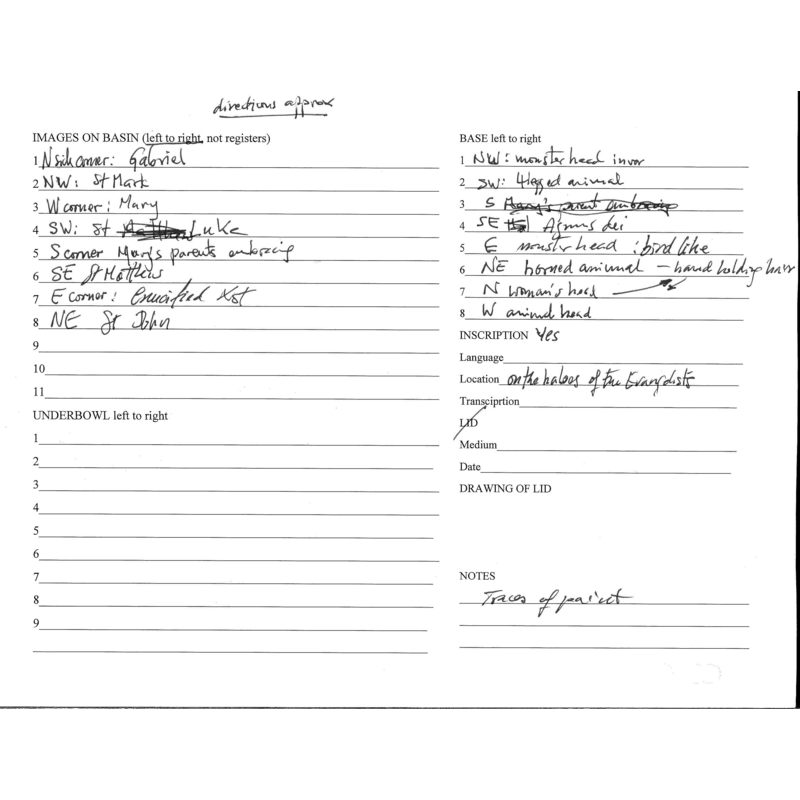 directions approx
IMAGES ON BASIN (left to right, not registers)
1 N side corner: Gabriel
2 NW: St Mark
3 W corner: Mary
4 SW: St Luke
5 S corner Mary's parents embracing
6 SE St Matthew
7 E corner: Crucified Xst
8 NE St John
9
10
11
UNDERBOWL left to right
1
2
3
4
5
6
7
8
9
BASE left to right
1 NW: monster head inver
2 SW: 4legged animal
3 S Mary's parents embracing
4 SE Agnus dei
5 E monster head: bird like
6 NE horned animal – hand holding
7 N woman's head
8 W animal head
INSCRIPTION Yes
Language
Location on the haloes of the Evangelists
Transciprtion
LID
Medium
Date
DRAWING OF LID
NOTES
Traces of paint